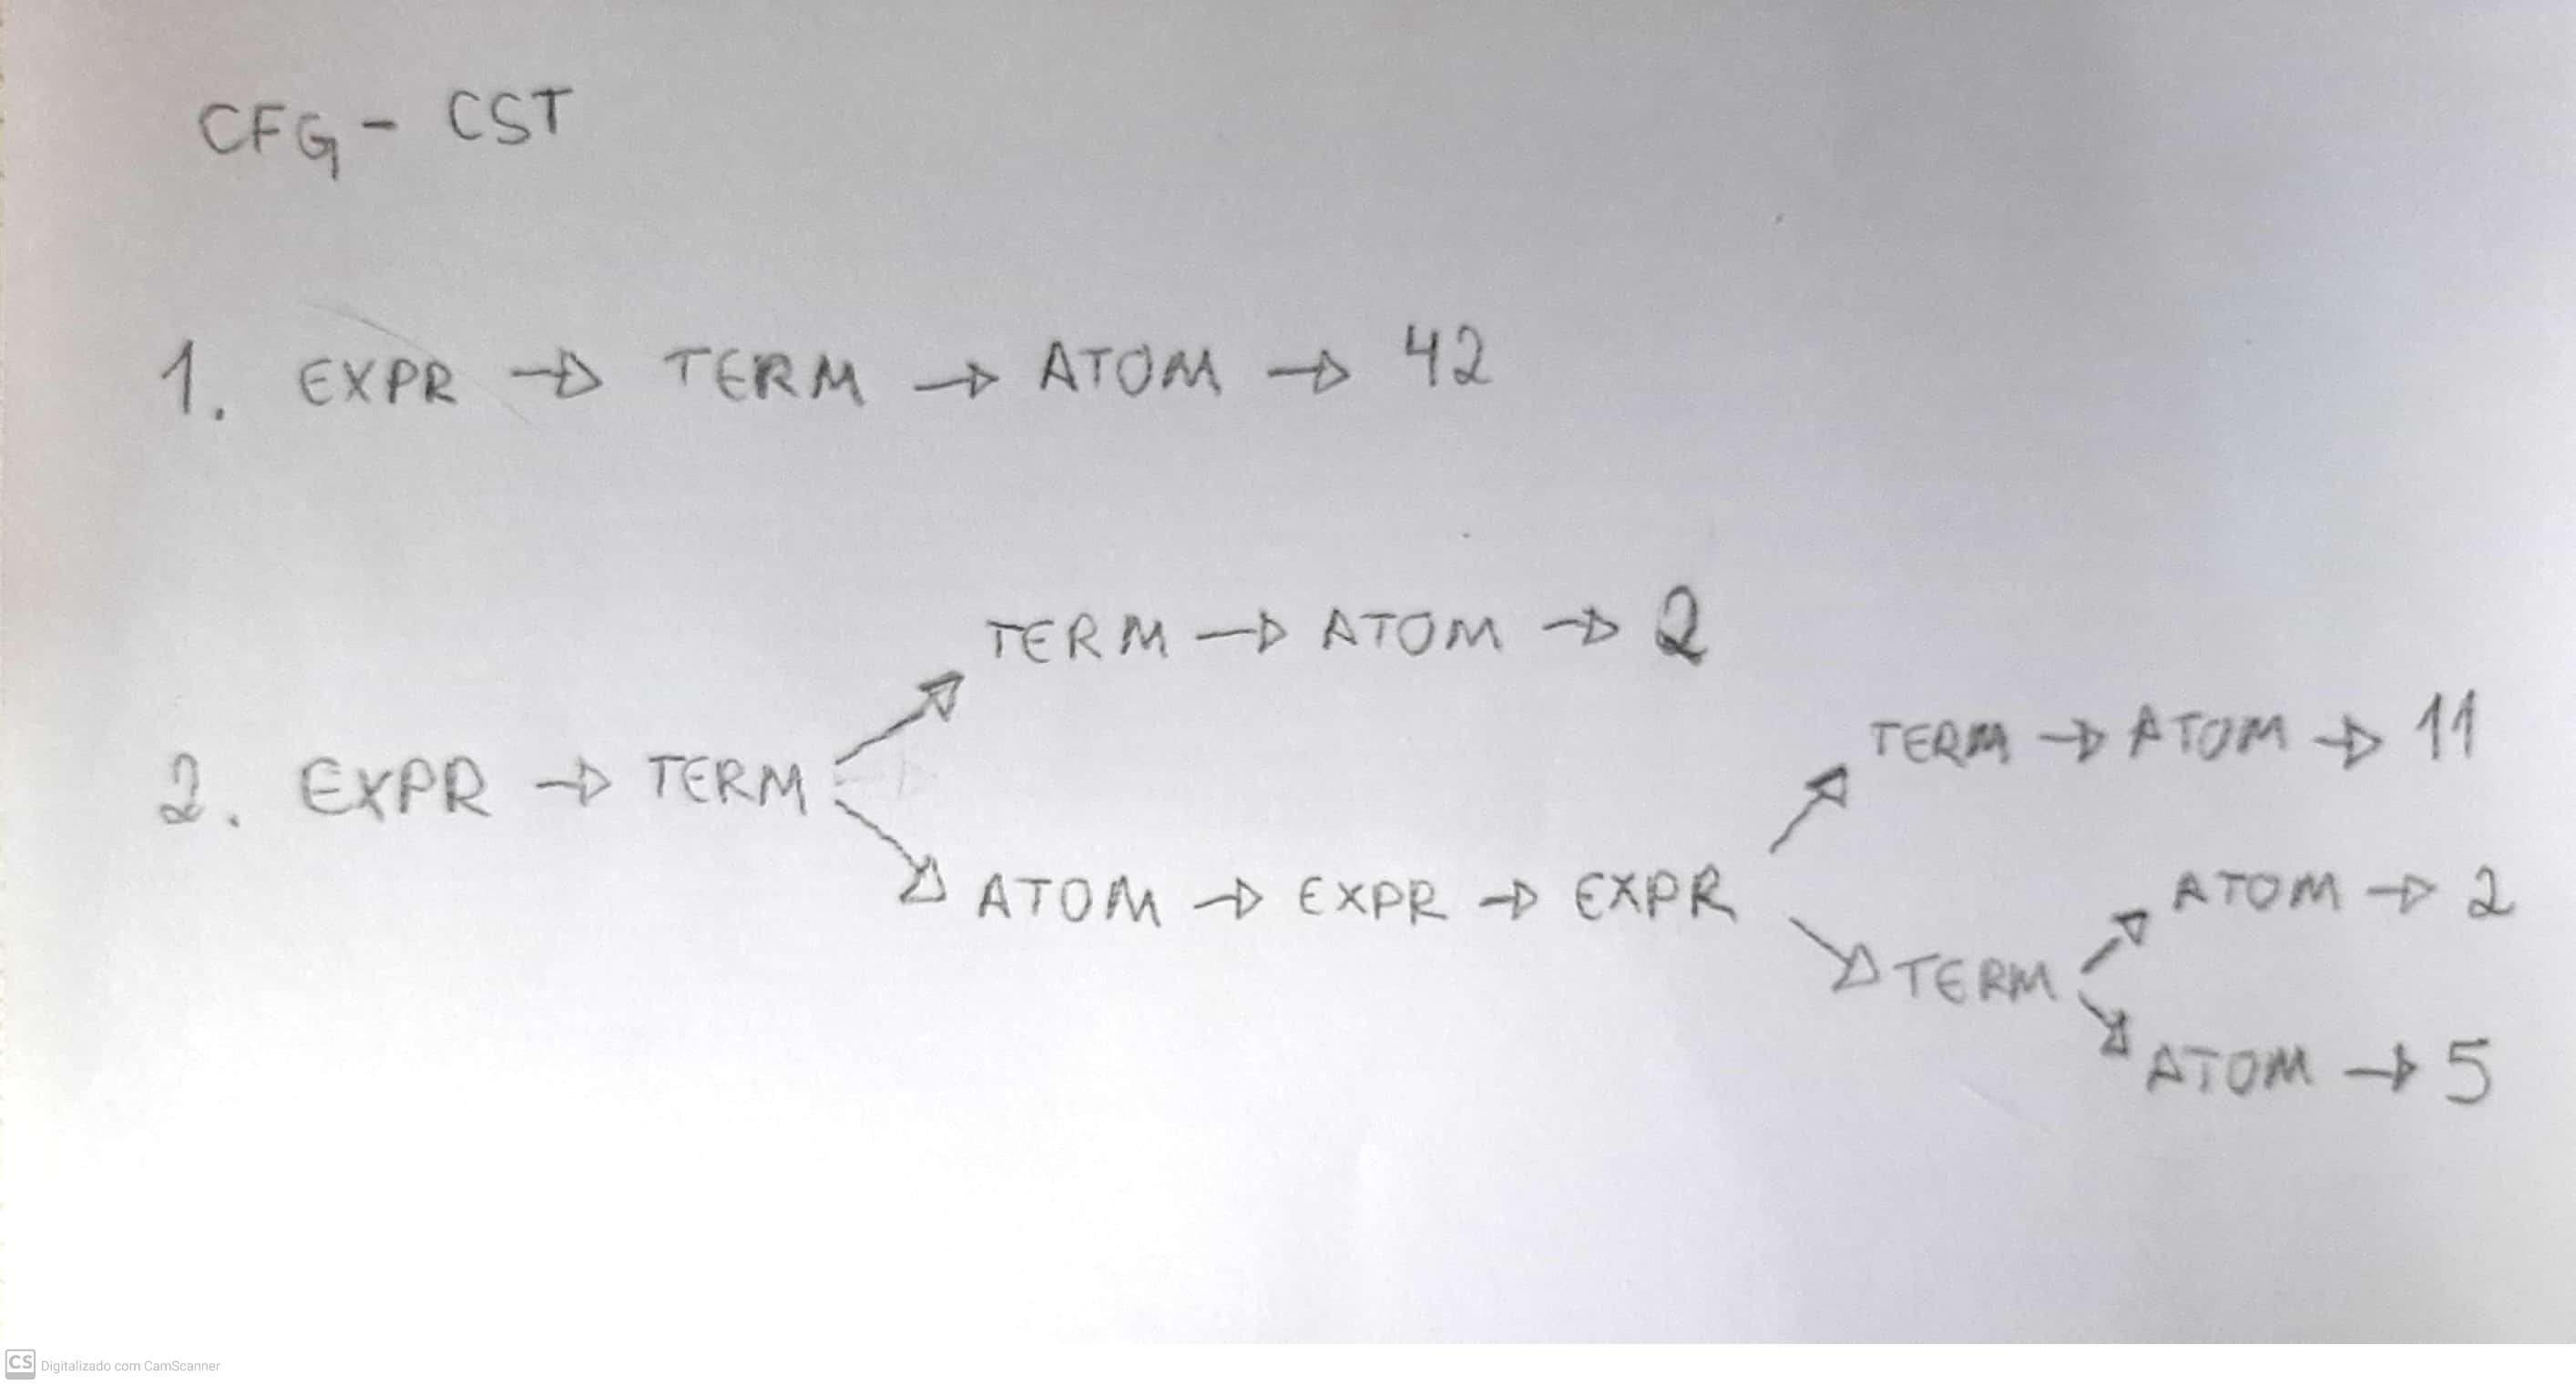 CFG - CST
1. EXPR → TERM → ATOM → 42
TERM → ATOM → 2
TERM → ATOM → 11
2. EXPR → TERM
ATOM → EXPR → EXPR
ATOM → 2
TERM
ATOM → 5
CS Digitalizado com CamScanner